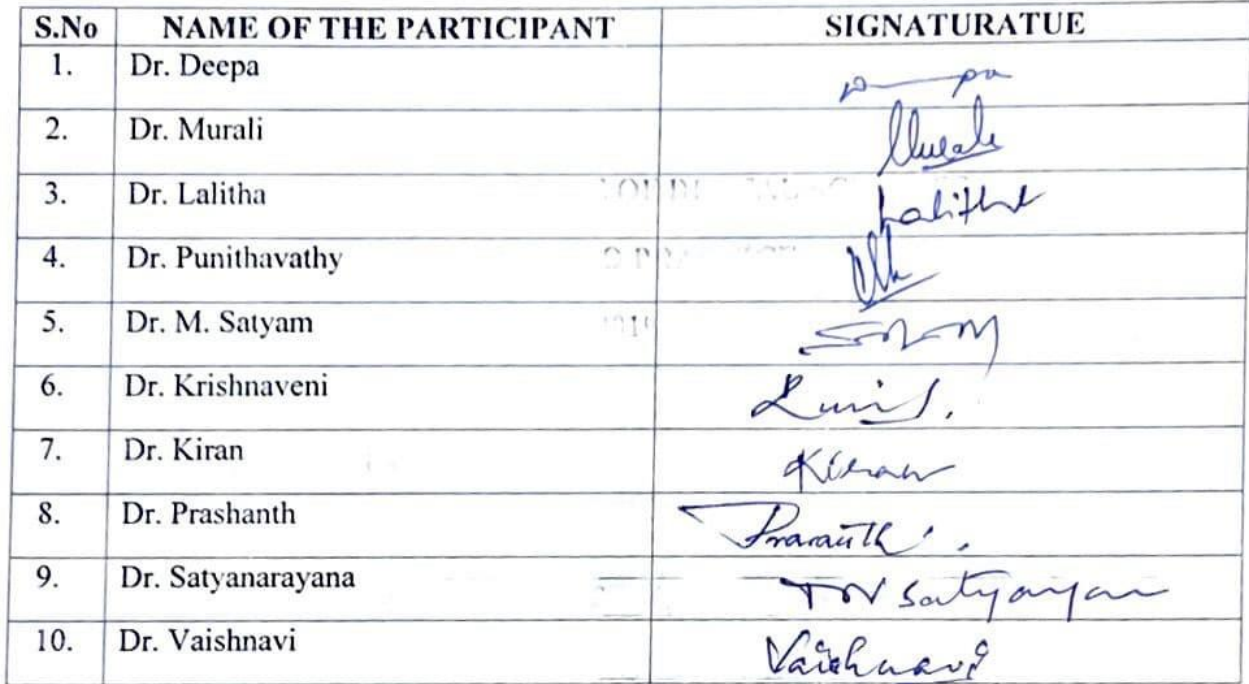 S.No NAME OF THE PARTICIPANT SIGNATURATUE
1. Dr. Deepa
2. Dr. Murali Murali
3. Dr. Lalitha Lalitha
4. Dr. Punithavathy
5. Dr. M. Satyam
6. Dr. Krishnaveni
7. Dr. Kiran Kiran
8. Dr. Prashanth Prasanth
9. Dr. Satyanarayana
10. Dr. Vaishnavi Vaishnavi